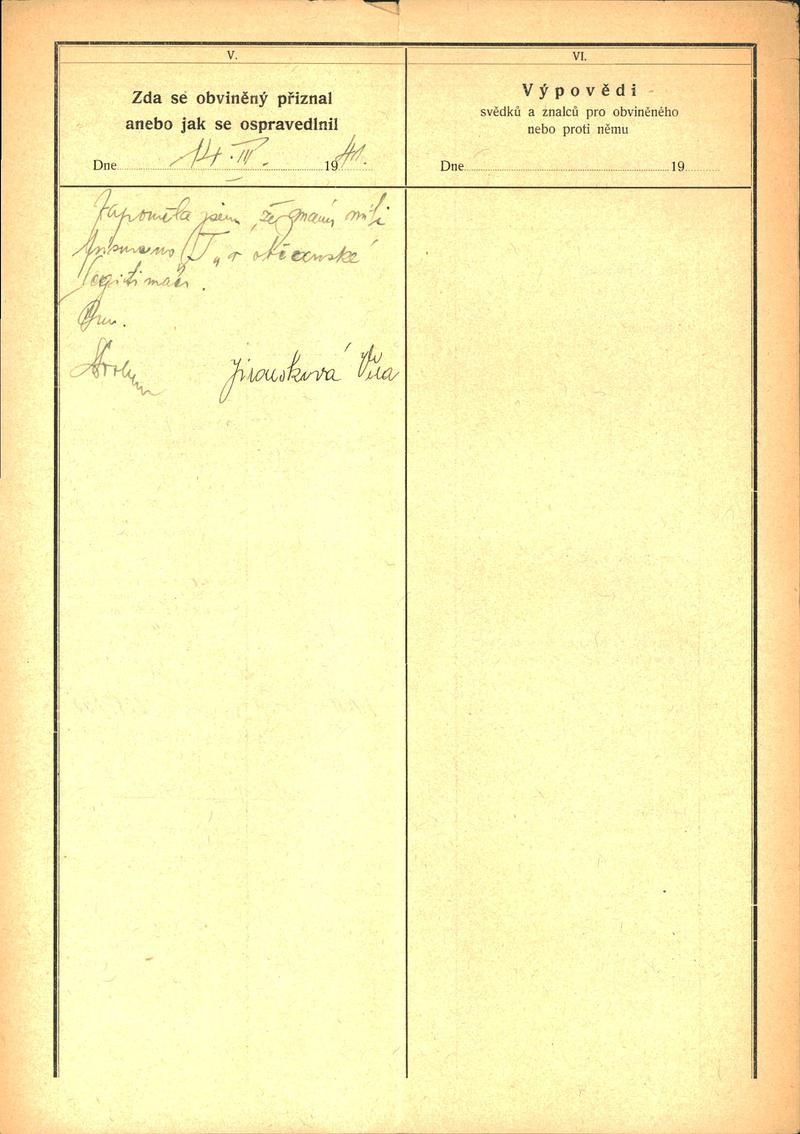 V.
Zda se obviněný přiznal
anebo jak se ospravedlnil
Dne 14. IV. 1941.
Zapoměla jsem, že mám míti
písmeno „J“ v občanské
legitimaci.
Jirousková Věra
VI.
Výpovědi
svědků a znalců pro obviněného
nebo proti němu
Dne 19